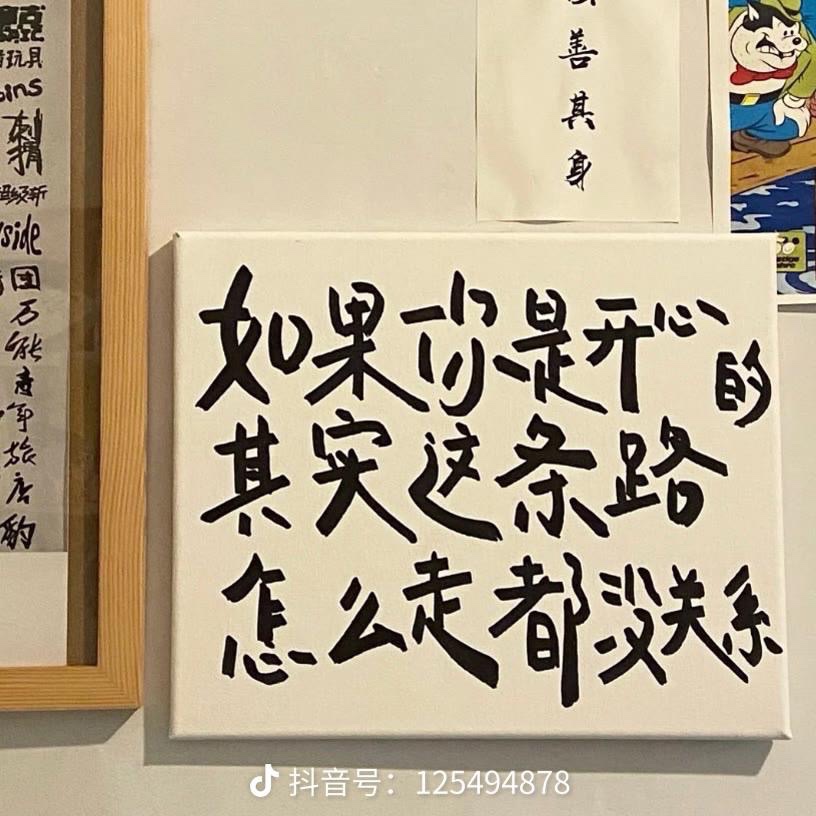 玩具
刺猬
side
团
万能青年旅店
善其身
如果你是开心的
其实这条路
怎么走都没关系
抖音号：125494878